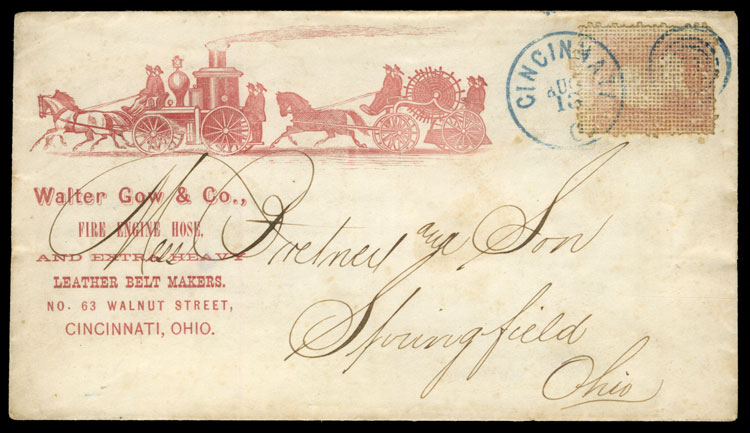 CINCINNATI
AUG
Walter Gow & Co.,
FIRE ENGINE HOSE,
AND EXTRA HEAVY
LEATHER BELT MAKERS.
NO. 63 WALNUT STREET,
CINCINNATI, OHIO.
Son
Springfield
Ohio